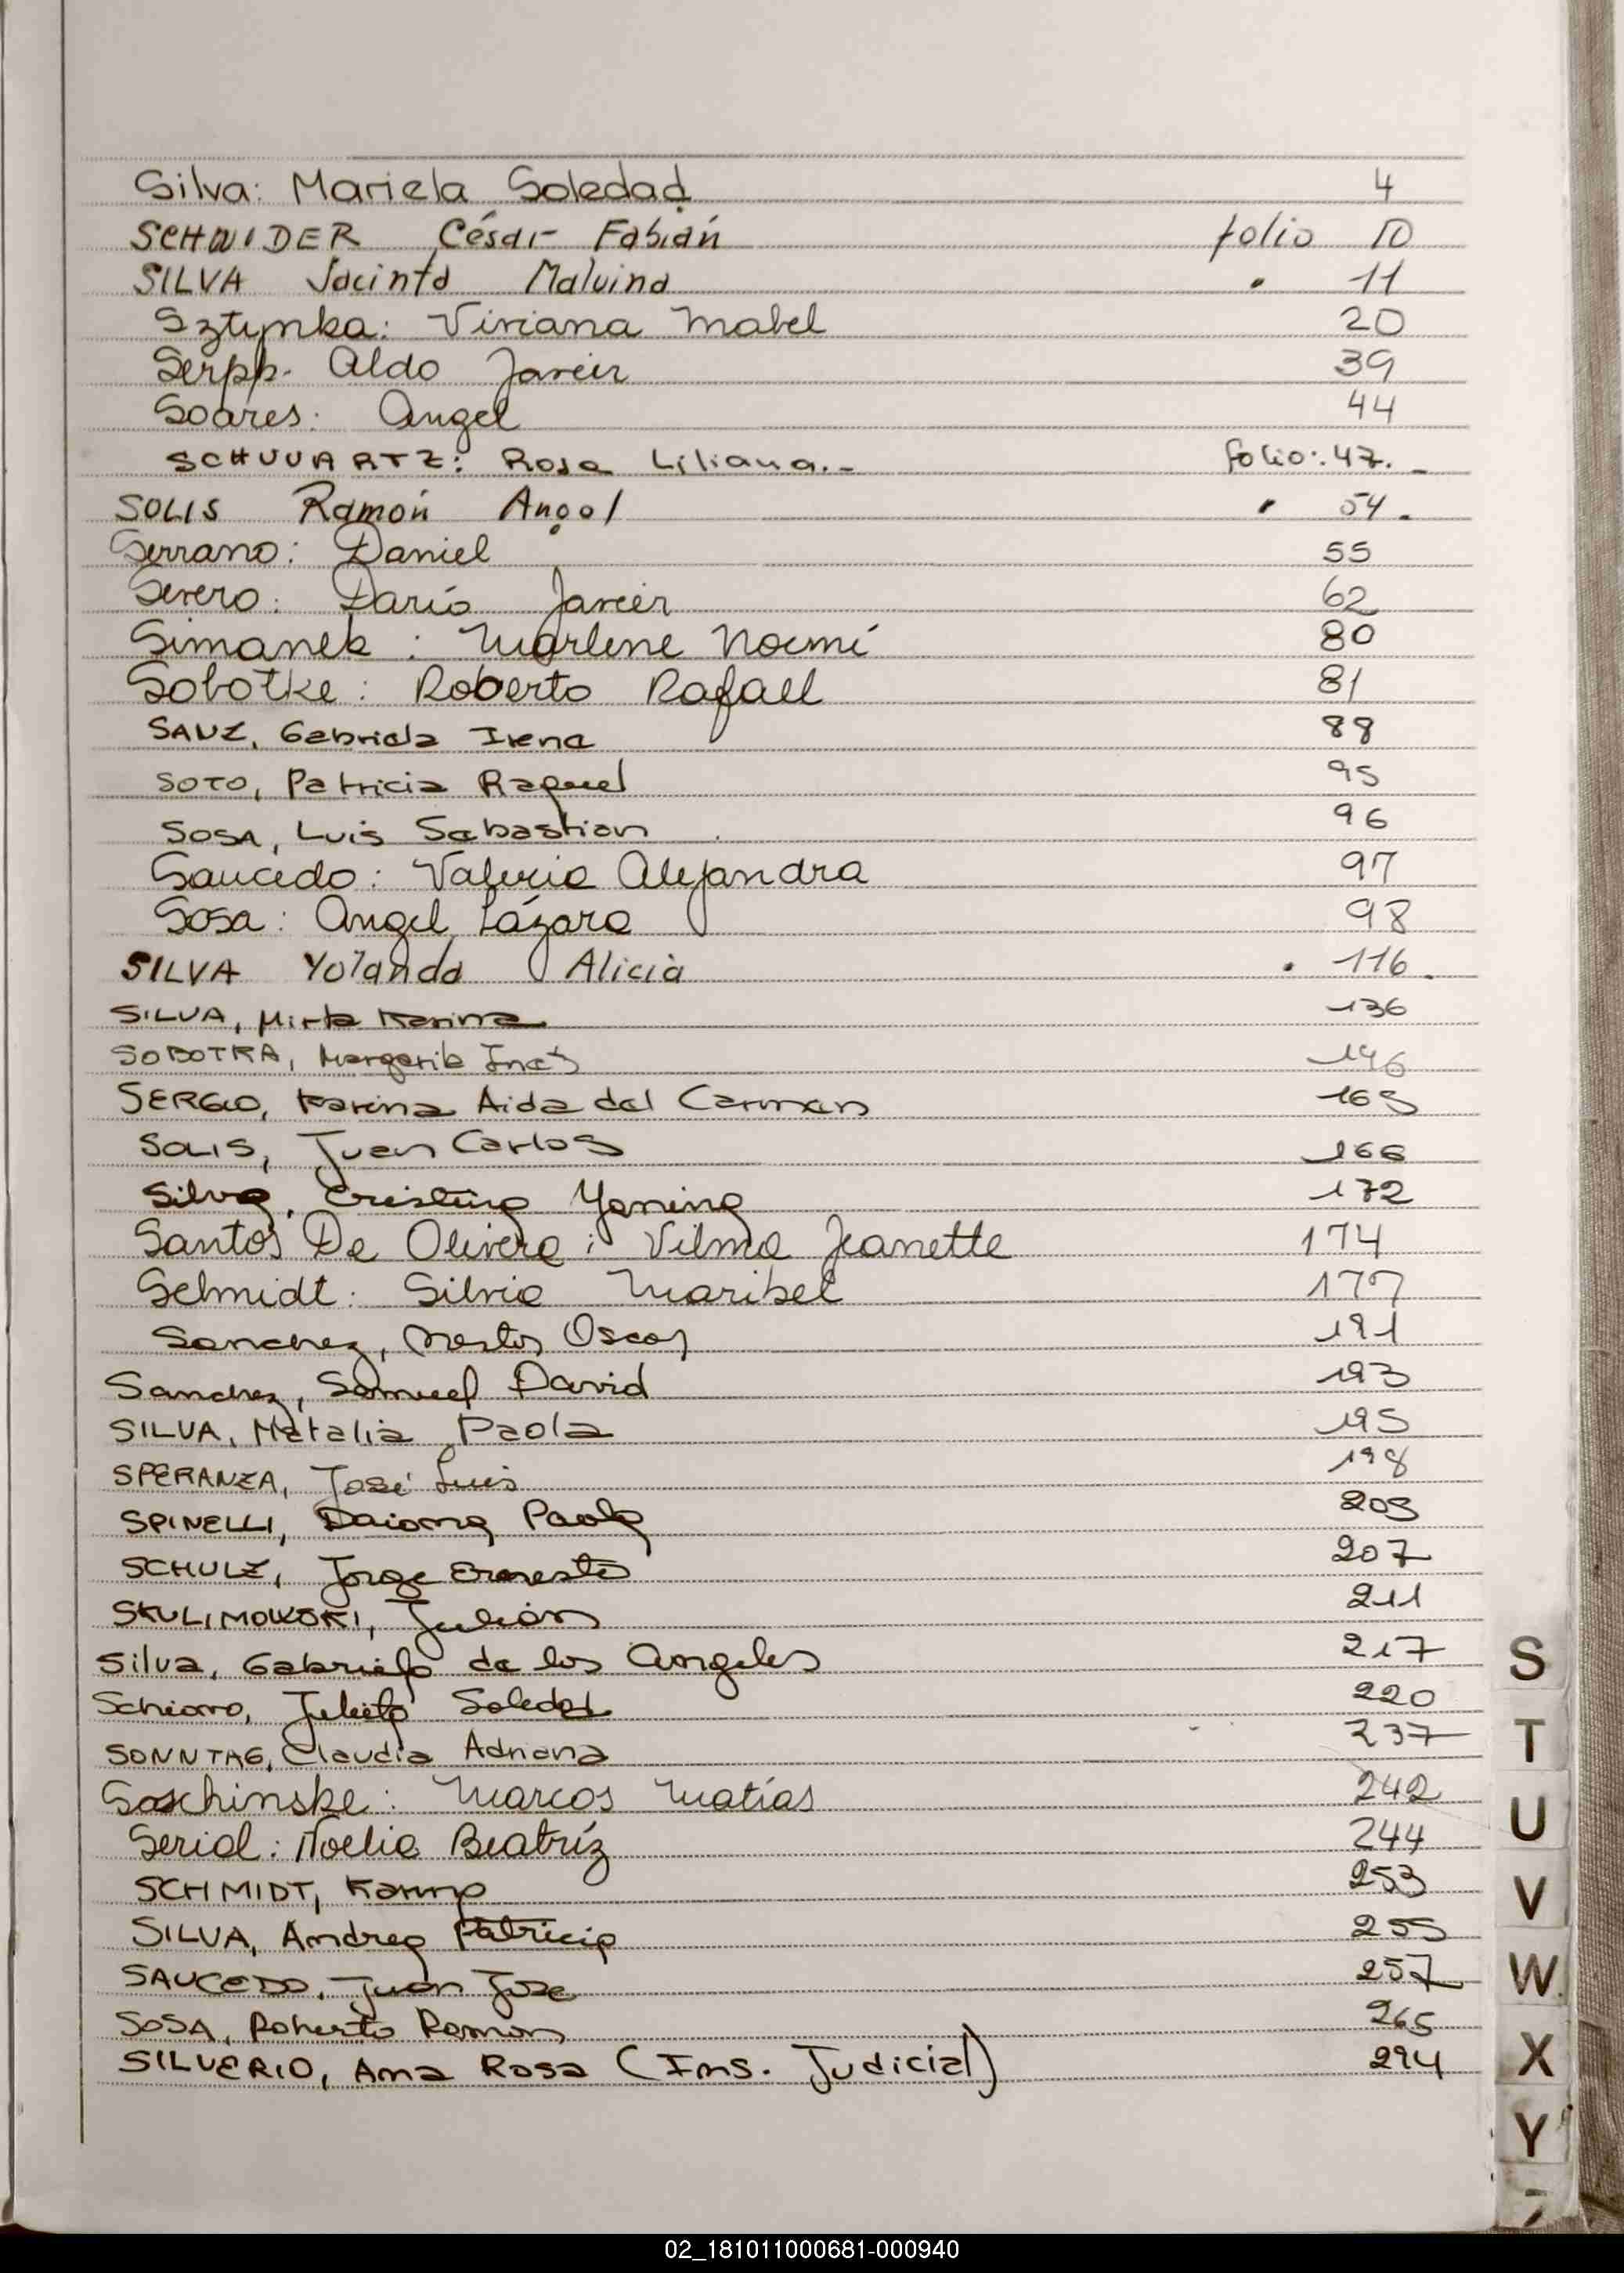 Silva: Mariela Soledad 4
SCHNIDER César Fabián folio 10
SILVA Jacinta Malvina " 11
Sztynka: Viviana Mabel 20
Serpp. Aldo Javier 39
Soares: Angel 44
SCHUUARTZ: Rosa Liliana.- folio: 47.-
SOLIS Ramón Angel " 54.
Serrano: Daniel 55
Severo: Darío Javier 62
Simanek: Marlene Noemí 80
Sobotke: Roberto Rafael 81
SANZ, Gabriela Irene 88
SOTO, Patricia Raquel 95
SOSA, Luis Sebastian 96
Saucedo: Valeria Alejandra 97
Sosa: Angel Lázaro 98
SILVA Yolanda Alicia " 116.
SILVA, Mirta Karina 136
SOBOTRA, Margarita Inés 146
SERGIO, Karina Aida del Carmen 165
SOLIS, Juan Carlos 166
Silva, Cristina Yanina 172
Santos De Olivera: Vilma Jeanette 174
Schmidt: Silvia Maribel 177
Sanchez, Nestor Oscar 191
Sanchez, Samuel David 193
SILVA, Natalia Paola 195
SPERANZA, José Luis 198
SPINELLI, Daiana Paola 205
SCHULZ, Jorge Ernesto 207
SKULIMOWSKI, Julián 211
Silva, Gabriela de los Angeles 217
Schiaro, Julieta Soledad 220
SONNTAG, Claudia Adriana 237
Saschinske: Marcos Matías 242
Serial: Noelia Beatríz 244
SCHMIDT, Karina 253
SILVA, Andrea Patricia 255
SAUCEDO, Juan Jose 257
SOSA, Roberto Ramon 265
SILVERIO, Ana Rosa (Ins. Judicial) 294
S
T
U
V
W
X
Y
Z
02_181011000681-000940